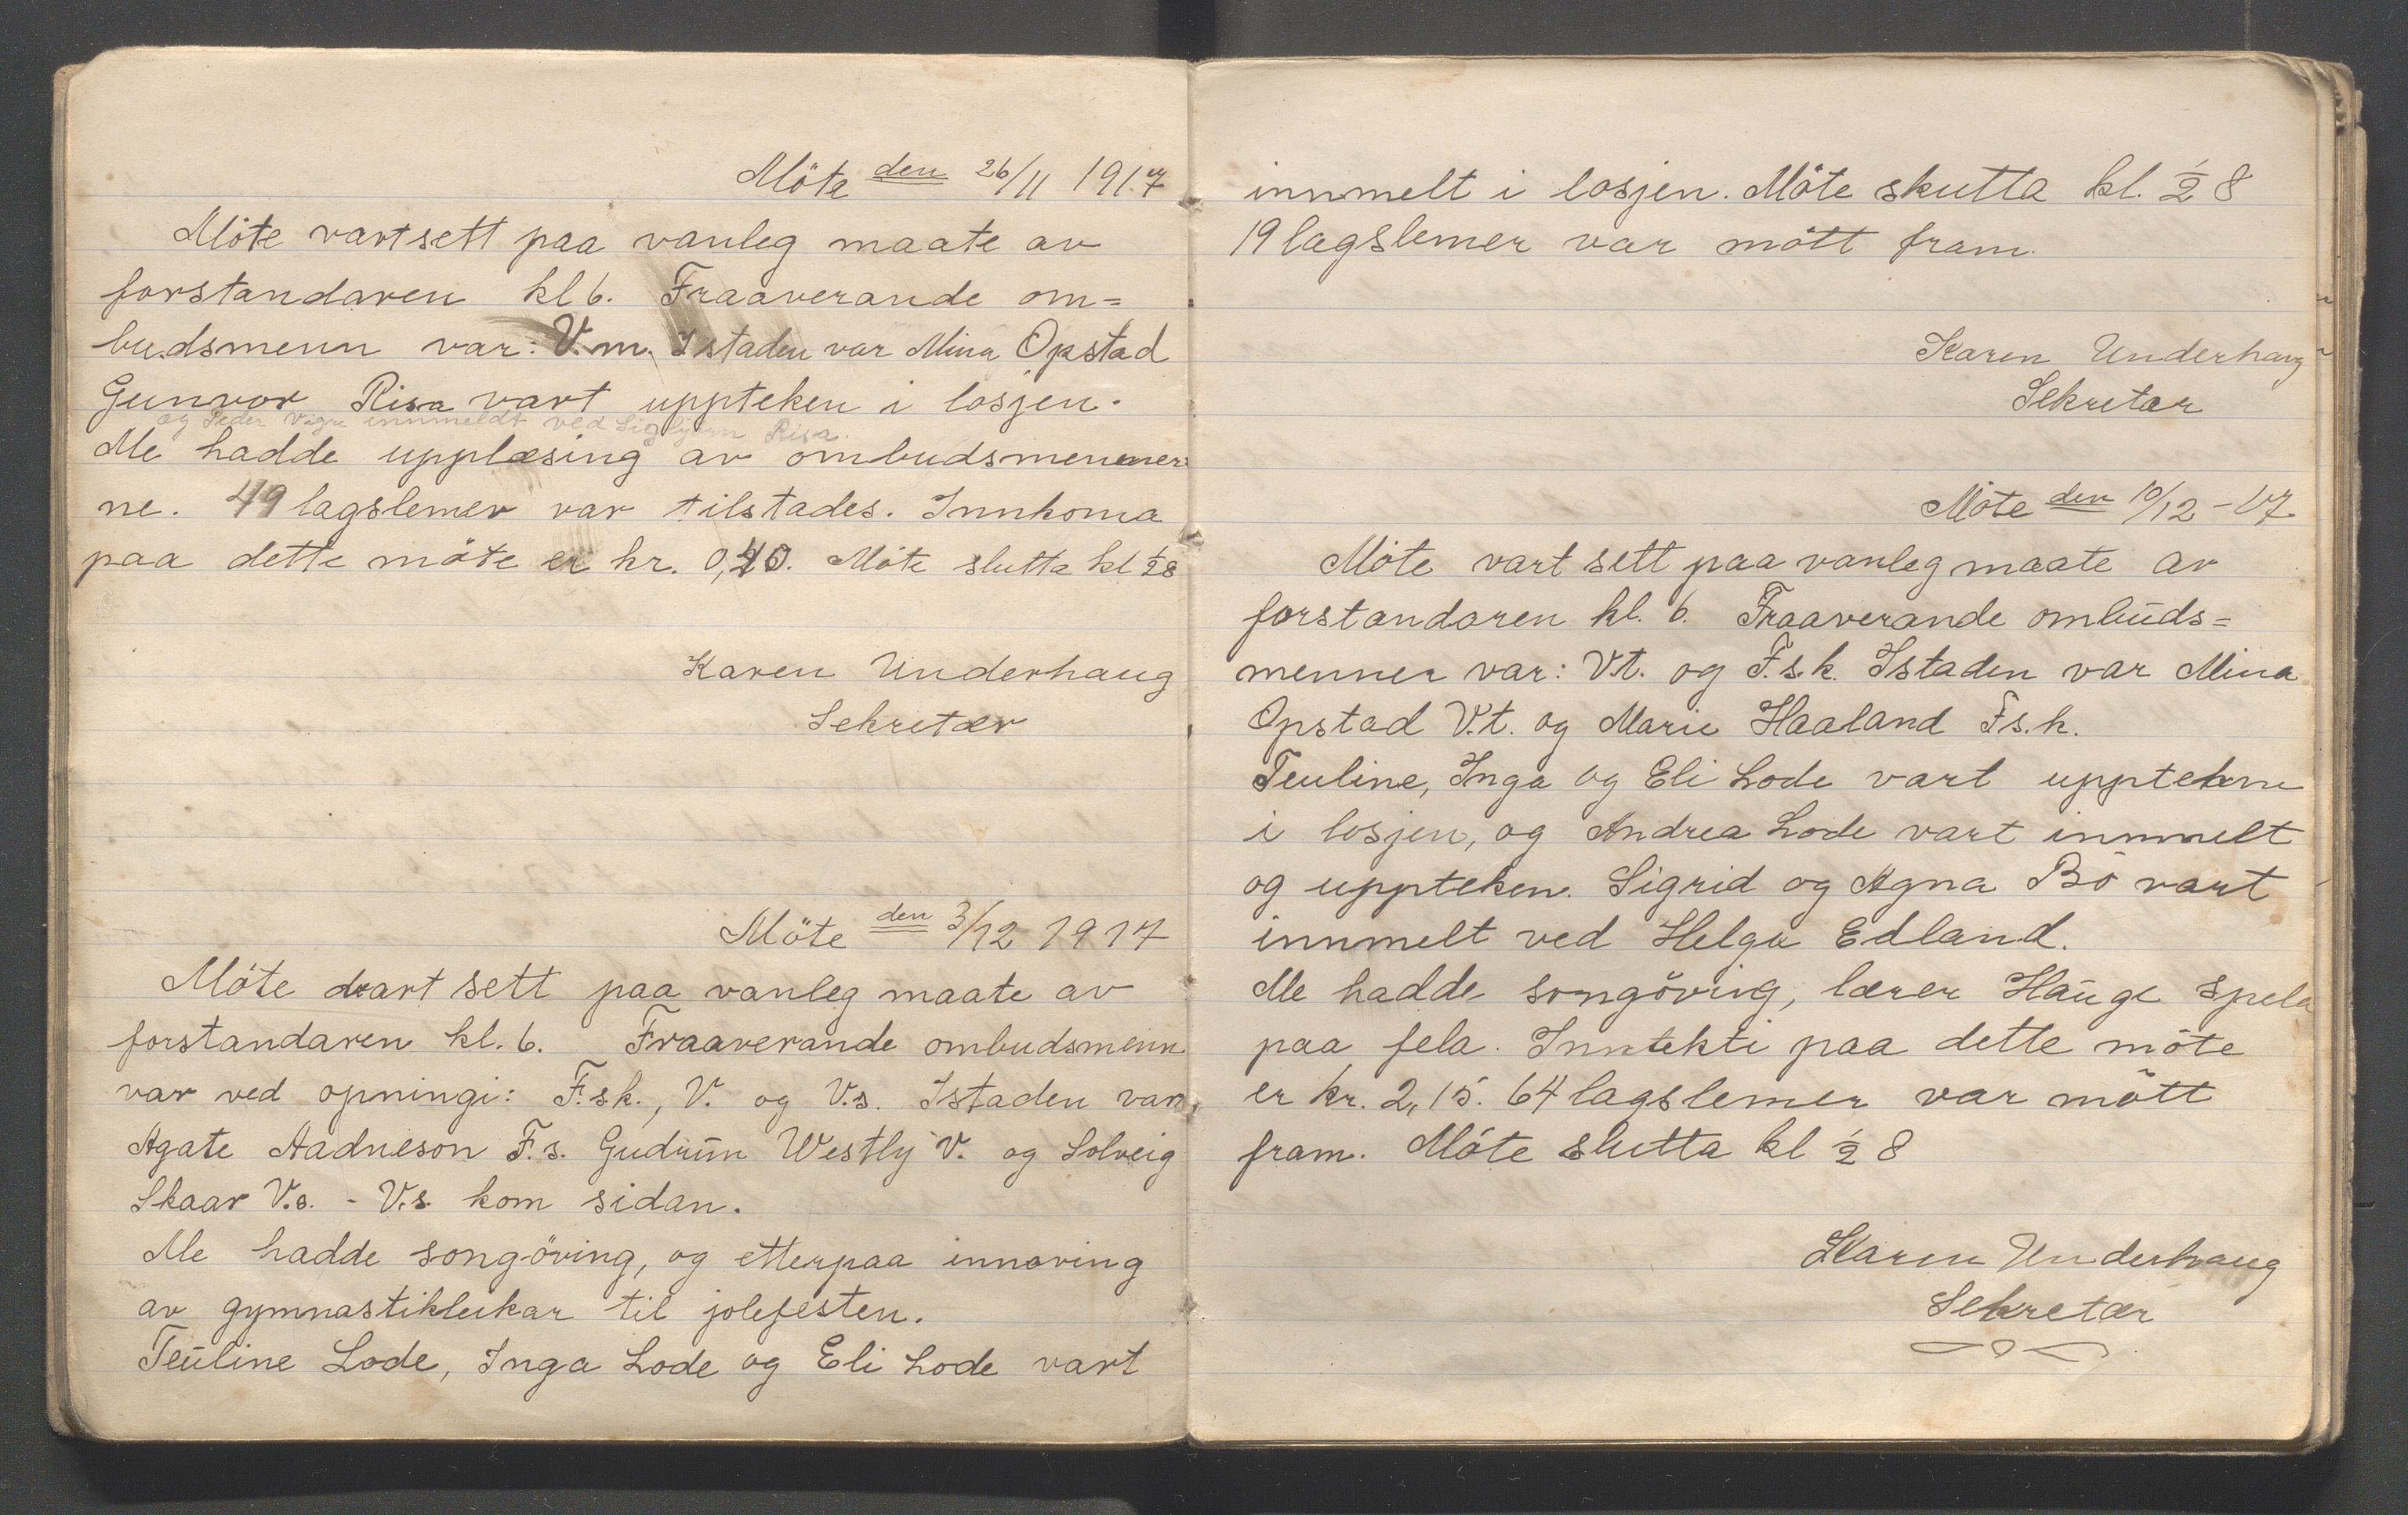 Möte den 26/11 1917
Möte vart sett paa vanleg maate av
forstandaren kl 6. Fraaverande om=
budsmenn var: V.m. Istaden var Mina Opstad
Gunvor Risa vart uppteken i losjen.
og Peder Vigre innmeldt ved Sigbjørn Risa.
Me hadde upplæsing av ombudsmennner
ne. 49 lagslemer var tilstades. Innkoma
paa dette möte er kr. 0,40. Möte slutta kl ½8
Karen Underhaug
Sekretær
Möte den 3/12 1917
Möte vart sett paa vanleg maate av
forstandaren kl. 6. Fraaverande ombudsmenn
var ved opningi: F.sk., V. og V.s. Istaden var,
Agate Aadneson F.s. Gudrun Westly V. og Solveig
Skaar V.s. - V.s. kom sidan.
Me hadde songöving, og etterpaa innöving
av gymnastikleikar til jolefesten.
Teuline Lode, Inga Lode og Eli Lode vart
innmelt i losjen. Möte skutta kl. ½ 8
19 lagslemer var mött fram.
Karen Underhaug
Sekretær
Möte den 10/12 - 17
Möte vart sett paa vanleg maate av
forstandaren kl. 6. Fraaverande ombuds=
menner var: V.t. og F.s.k. Istaden var Mina
Opstad V.t. og Marie Haaland F.s.k.
Teuline, Inga og Eli Lode vart upptekne
i losjen, og Andrea Lode vart innmelt
og uppteken. Sigrid og Agna Bö vart
innmelt ved Helga Edland.
Me hadde songöving, lærer Hauge spela
paa fela. Inntekti paa dette möte
er kr. 2,15. 64 lagslemer var mött
fram. Möte slutta kl ½ 8
Karen Underhaug
Sekretær